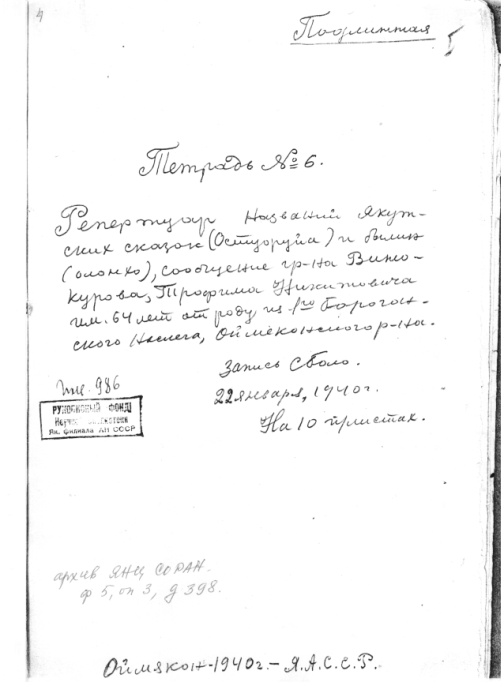 4
Подлинная
5
Тетрадь № 6.
Репертуар названий якут-
ских сказок (Остуоруйа) и былин
(олонхо), сообщение гр-на Вино-
курова, Трофима Никитовича
им. 64 лет от роду, из 1го Борогон-
ского Наслега, Оймеконского р-на.
Запись Сболо.
22 января, 1940 г.
На 10 п/листах.
Инв. 986
РУКОПИСНЫЙ ФОНД
Научн.
Як. филиала АН СССР
архив ЯНЦ СО РАН.
ф 5, оп 3, д 398.
Оймякон-1940 г. - Я.А.С.С.Р.